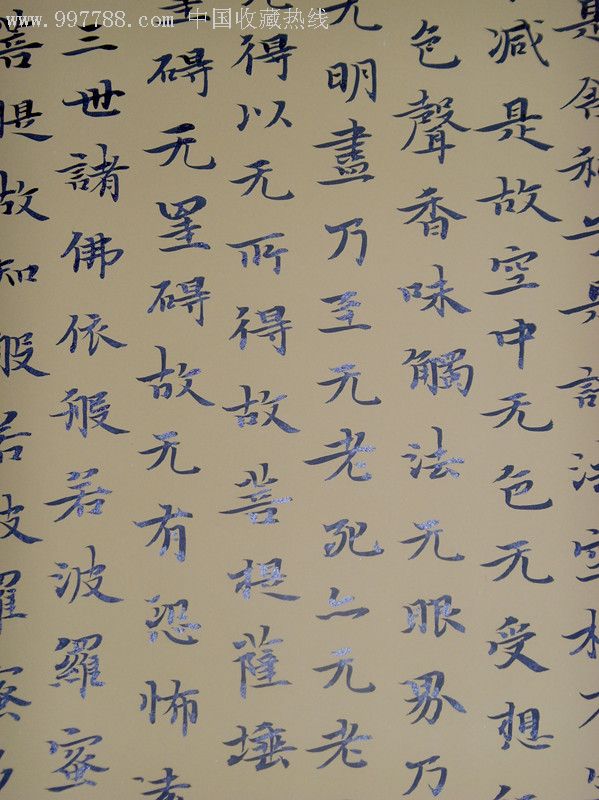 www.997788.com 中国收藏热线
是舍利子是諸法空相不
减是故空中无色无受想
色聲香味觸法无眼界乃
无明盡乃至无老死亦无老
得以无所得故菩提薩埵
罣碍无罣碍故无有恐怖遠
三世諸佛依般若波羅蜜
提故知般若波羅蜜多